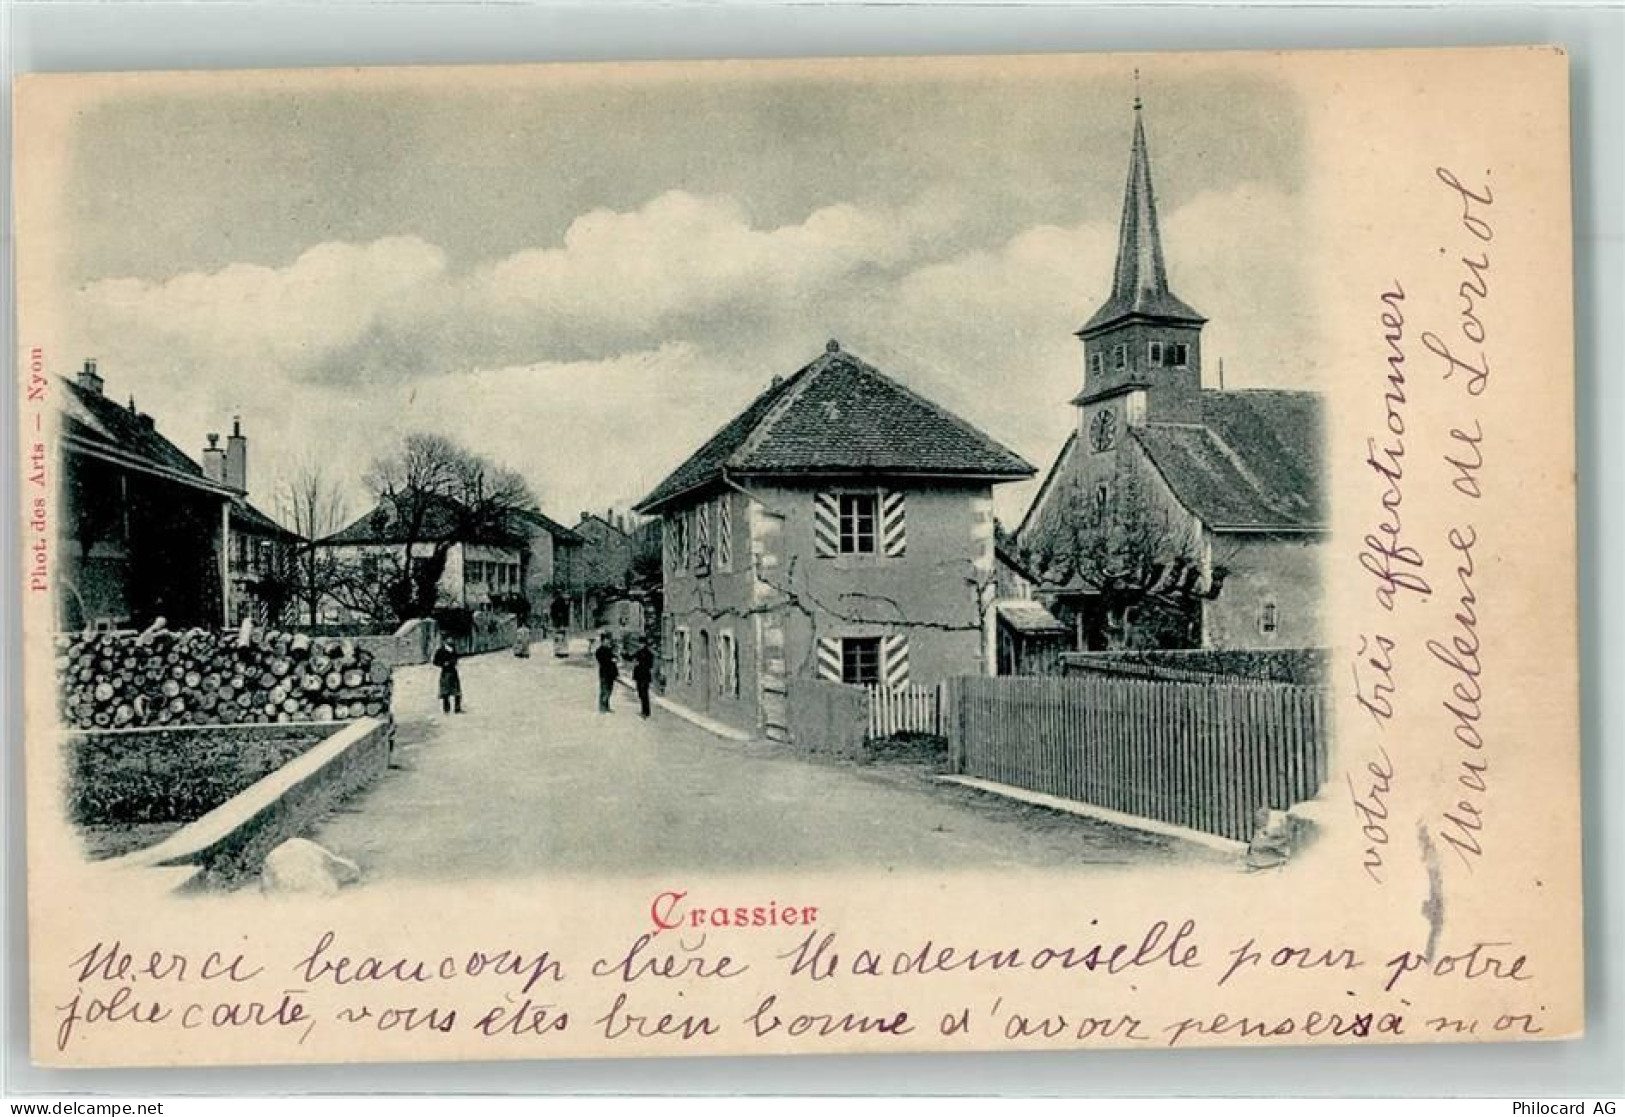 Phot. des Arts — Nyon
Crassier
Merci beaucoup chère Mademoiselle pour votre
jolie carte, vous êtes bien bonne d'avoir penser à moi
votre très affectionner
Madeleine de Loriol.
delcampe.net
Philocard AG